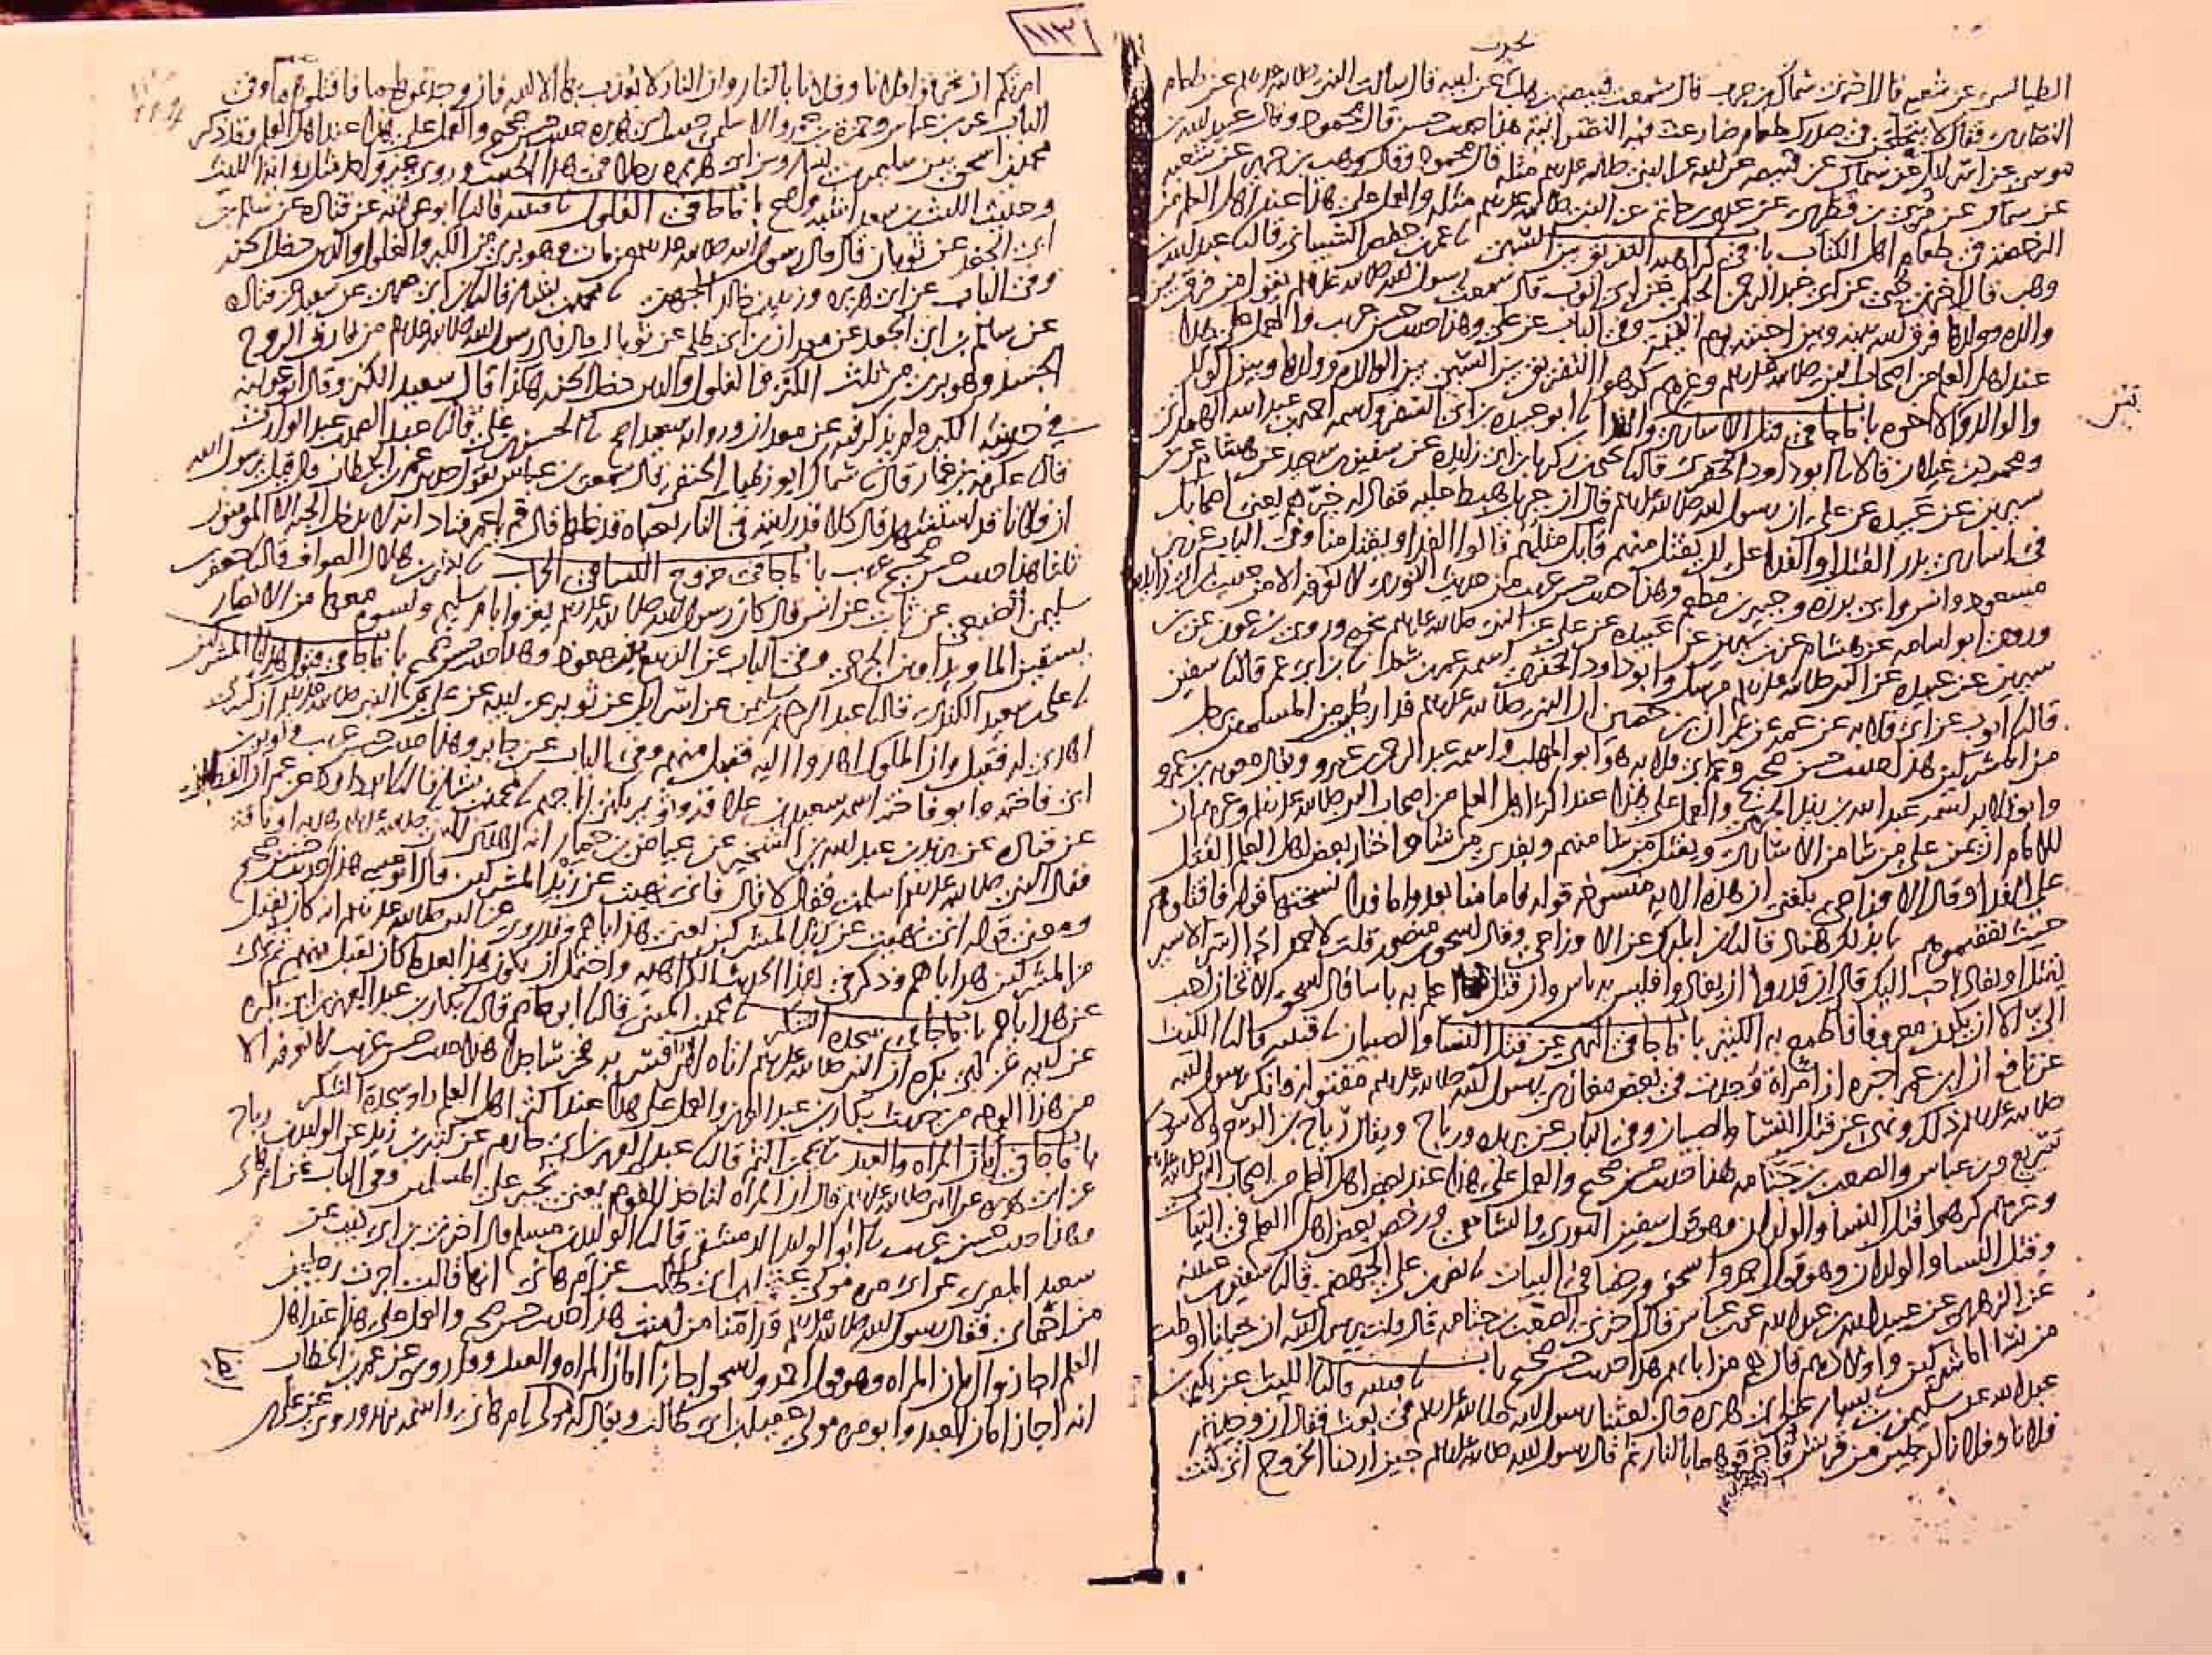 يحدث
الطيالسي عن شعبة قال اخبرني سماك بن حرب قال سمعت قبيصة بن هلب يحدث عن ابيه قال سالت النبي صلى الله عليه وسلم عن طعام
النصارى فقال لا يتخلجن في صدرك طعام ضارعت فيه النصرانية هذا حديث حسن قال محمود وقال عبيد الله بن
موسى عن اسرائيل عن سماك عن قبيصة عن ابيه عن النبي صلى الله عليه وسلم مثله قال محمود وقال وهب بن جرير عن شعبة
عن سماك عن مري بن قطري عن عدي بن حاتم عن النبي صلى الله عليه وسلم مثله والعمل على هذا عند اهل العلم من
الرخصة في طعام اهل الكتاب باب في كراهية التفريق بين السبي عمر بن حفص الشيباني قال عبد الله بن
وهب قال اخبرني حيي عن ابي عبد الرحمن الحبلي عن ابي ايوب قال سمعت رسول الله صلى الله عليه وسلم يقول من فرق بين
والدة وولدها فرق الله بينه وبين احبته يوم القيمة وفي الباب عن علي وهذا حديث حسن غريب والعمل على هذا
عند اهل العلم من اصحاب النبي صلى الله عليه وسلم وغيرهم كرهوا التفريق بين السبي بين الوالدة وولدها وبين الولد
والوالد والاخوة باب ما جا في قتل الاسارى والفدا ابو عبيدة بن ابي السفر واسمه احمد بن عبد الله الهمداني
ومحمود بن غيلان قالا ابو داود الحفري قال يحيى بن زكريا بن ابي زايدة عن سفين بن سعيد عن هشام عن
سيرين عن عبيدة عن علي ان رسول الله صلى الله عليه وسلم قال ان جبرايل هبط عليه فقال له خيرهم يعني اصحابك
في اسارى بدر القتل او الفدا على ان يقتل منهم قابل مثلهم قالوا الفدا ويقتل منا وفي الباب عن بن
مسعود وانس وابي برزة وجبير بن مطعم وهذا حديث حسن غريب من حديث الثوري لا نعرفه الا من حديث ابن ابي زايدة
وروى ابو اسامة عن هشام عن بن سيرين عن عبيدة عن علي عن النبي صلى الله عليه وسلم نحوه وروى بن عون عن بن
سيرين عن عبيدة عن النبي صلى الله عليه وسلم مرسلا وابو داود الحفري اسمه عمر بن سعد بن ابي عمر قال سفين
قال ايوب عن ابي قلابة عن عمه عن عمران بن حصين ان النبي صلى الله عليه وسلم فدا رجلين من المسلمين برجل
من المشركين هذا حديث حسن صحيح وعم ابي قلابة هو ابو المهلب واسمه عبد الرحمن بن عمرو ويقال معوية بن عمرو
وابو قلابة اسمه عبد الله بن زيد الجرمي والعمل على هذا عند اكثر اهل العلم من اصحاب النبي صلى الله عليه وسلم وغيرهم ان
للامام ان يمن على من شا من الاسارى ويقتل من شا منهم ويفدي من شا واختار بعض اهل العلم القتل
على الفدا وقال الاوزاعي بلغني ان هذه الاية منسوخة قوله فاما منا بعد واما فدا نسختها قوله فاقتلوهم
حيث ثقفتموهم بذلك هناد قال بن المبارك عن الاوزاعي وقال اسحق بن منصور قلت لاحمد اذا اسر الاسير
يقتل او يفادا احب اليك قال ان قدروا ان يفادوا فليس به باس وان قتل فما اعلم به باسا قال اسحق الاثخان احب
الي الا ان يكون معروفا فاطمع به الكثير باب ما جا في النهي عن قتل النسا والصبيان قتيبة قال الليث
عن نافع ان ابن عمر اخبره ان امراة وجدت في بعض مغازي رسول الله صلى الله عليه وسلم مقتولة فانكر رسول الله
صلى الله عليه وسلم ذلك ونهى عن قتل النسا والصبيان وفي الباب عن بريدة ورباح ويقال رياح بن الربيع والاسود
بن سريع وبن عباس والصعب بن جثامة هذا حديث حسن صحيح والعمل على هذا عند بعض اهل العلم من اصحاب النبي صلى الله عليه وسلم
وغيرهم كرهوا قتل النسا والولدان وهو قول سفين الثوري والشافعي ورخص بعض اهل العلم في البيات
وقتل النسا والولدان وهو قول احمد واسحق ورخصا في البيات نصر بن علي الجهضمي قال سفين بن عيينة
عن الزهري عن عبيد الله بن عبد الله عن بن عباس قال اخبرني الصعب بن جثامة قال قلت يرسول الله ان خيلنا اوطت
من نسا المشركين واولادهم قال هم من ابايهم هذا حديث حسن صحيح باب قتيبة قال الليث عن بكير بن
عبد الله عن سليمن بن يسار عن ابي هريرة قال بعثنا رسول الله صلى الله عليه وسلم في بعث فقال ان وجدتم
فلانا وفلانا لرجلين من قريش فاحرقوهما بالنار ثم قال رسول الله صلى الله عليه وسلم حين اردنا الخروج اني كنت
١١٣
امرتكم ان تحرقوا فلانا وفلانا بالنار وان النار لا يعذب بها الا الله فان وجدتموهما فاقتلوهما وفي
الباب عن بن عباس وحمزة بن عمرو الاسلمي حديث ابي هريرة حديث حسن صحيح والعمل على هذا عند اهل العلم وقد ذكر
محمد بن اسحق بين سليمن بن يسار وبين ابي هريرة رجلا في هذا الحديث وروى غير واحد مثل رواية الليث
وحديث الليث بن سعد اشبه واصح باب ما جا في الغلول قتيبة قال ابو عوانة عن قتادة عن سالم بن
ابي الجعد عن ثوبان قال قال رسول الله صلى الله عليه وسلم من مات وهو بري من الكبر والغلول والدين دخل الجنة
وفي الباب عن ابي هريرة وزيد بن خالد الجهني محمد بن بشار قال ابن ابي عدي عن سعيد عن قتادة
عن سالم بن ابي الجعد عن معدان بن ابي طلحة عن ثوبان قال قال رسول الله صلى الله عليه وسلم من فارق الروح
الجسد وهو بري من ثلث الكنز والغلول والدين دخل الجنة هكذا قال سعيد الكنز وقال ابو عوانة
في حديثه الكبر ولم يذكر فيه عن معدان ورواية سعيد اصح الحسن بن علي قال عبد الصمد بن عبد الوارث
قال عكرمة بن عمار قال سماك ابو زميل الحنفي قال سمعت بن عباس يقول حدثني عمر بن الخطاب قال قيل يرسول الله
ان فلانا قد استشهد قال كلا قد رايته في النار بعباءة قد غلها قال قم يا عمر فناد انه لا يدخل الجنة الا المومنون
ثلثا هذا حديث حسن صحيح غريب باب ما جا في خروج النسا في الحرب بشر بن هلال الصواف قال جعفر بن
سليمن الضبعي عن ثابت عن انس قال كان رسول الله صلى الله عليه وسلم يغزو بام سليم ونسوة معها من الانصار
يسقين الما ويداوين الجرحى وفي الباب عن الربيع بنت معوذ وهذا حديث حسن صحيح باب ما جا في قبول هدايا المشركين
علي بن سعيد الكندي قال عبد الرحيم بن سليمن عن اسرائيل عن ثوير عن ابيه عن علي عن النبي صلى الله عليه وسلم ان كسرى
اهدى له فقبل وان الملوك اهدوا اليه فقبل منهم وفي الباب عن جابر وهذا حديث حسن غريب وثوير بن
ابي فاختة وابو فاختة اسمه سعيد بن علاقة وثوير يكنى ابا جهم محمد بن بشار قال ابو داود عن عمران القطان
عن قتادة عن يزيد بن عبد الله بن الشخير عن عياض بن حمار انه اهدى للنبي صلى الله عليه وسلم هدية او ناقة
فقال النبي صلى الله عليه وسلم اسلمت فقال لا قال فاني نهيت عن زبد المشركين قال ابو عيسى هذا حديث حسن صحيح
ومعنى قوله اني نهيت عن زبد المشركين يعني هداياهم وقد روي عن النبي صلى الله عليه وسلم انه كان يقبل
من المشركين هداياهم وذكر في هذا الحديث الكراهية واحتمل ان يكون هذا بعد ما كان يقبل منهم ثم نهى
عن هداياهم باب ما جا في سجدة الشكر محمد بن المثنى قال ابو عاصم قال بكار بن عبد العزيز بن ابي بكرة
عن ابيه عن ابي بكرة ان النبي صلى الله عليه وسلم اتاه امر فسر به فخر ساجدا هذا حديث حسن غريب لا نعرفه الا
من هذا الوجه من حديث بكار بن عبد العزيز والعمل على هذا عند اكثر اهل العلم راوا سجدة الشكر
باب ما جا في امان المراة والعبد يحيى بن اكثم قال عبد العزيز بن ابي حازم عن كثير بن زيد عن الوليد بن رباح
عن ابي هريرة عن النبي صلى الله عليه وسلم قال ان المراة لتاخذ للقوم يعني تجير على المسلمين وفي الباب عن ام هانئ
وهذا حديث حسن غريب ابو الوليد الدمشقي قال الوليد بن مسلم قال اخبرني بن ابي ذيب عن
سعيد المقبري عن ابي مرة مولى عقيل بن ابي طالب عن ام هانئ انها قالت اجرت رجلين
من احمائي فقال رسول الله صلى الله عليه وسلم قد امنا من امنت هذا حديث حسن صحيح والعمل على هذا عند اهل
العلم اجازوا امان المراة وهو قول احمد واسحق اجازا امان المراة والعبد وقد روي عن عمر بن الخطاب
انه اجاز امان العبد وابو مرة مولى عقيل بن ابي طالب ويقال له مولى ام هانئ واسمه يزيد وروي عن علي